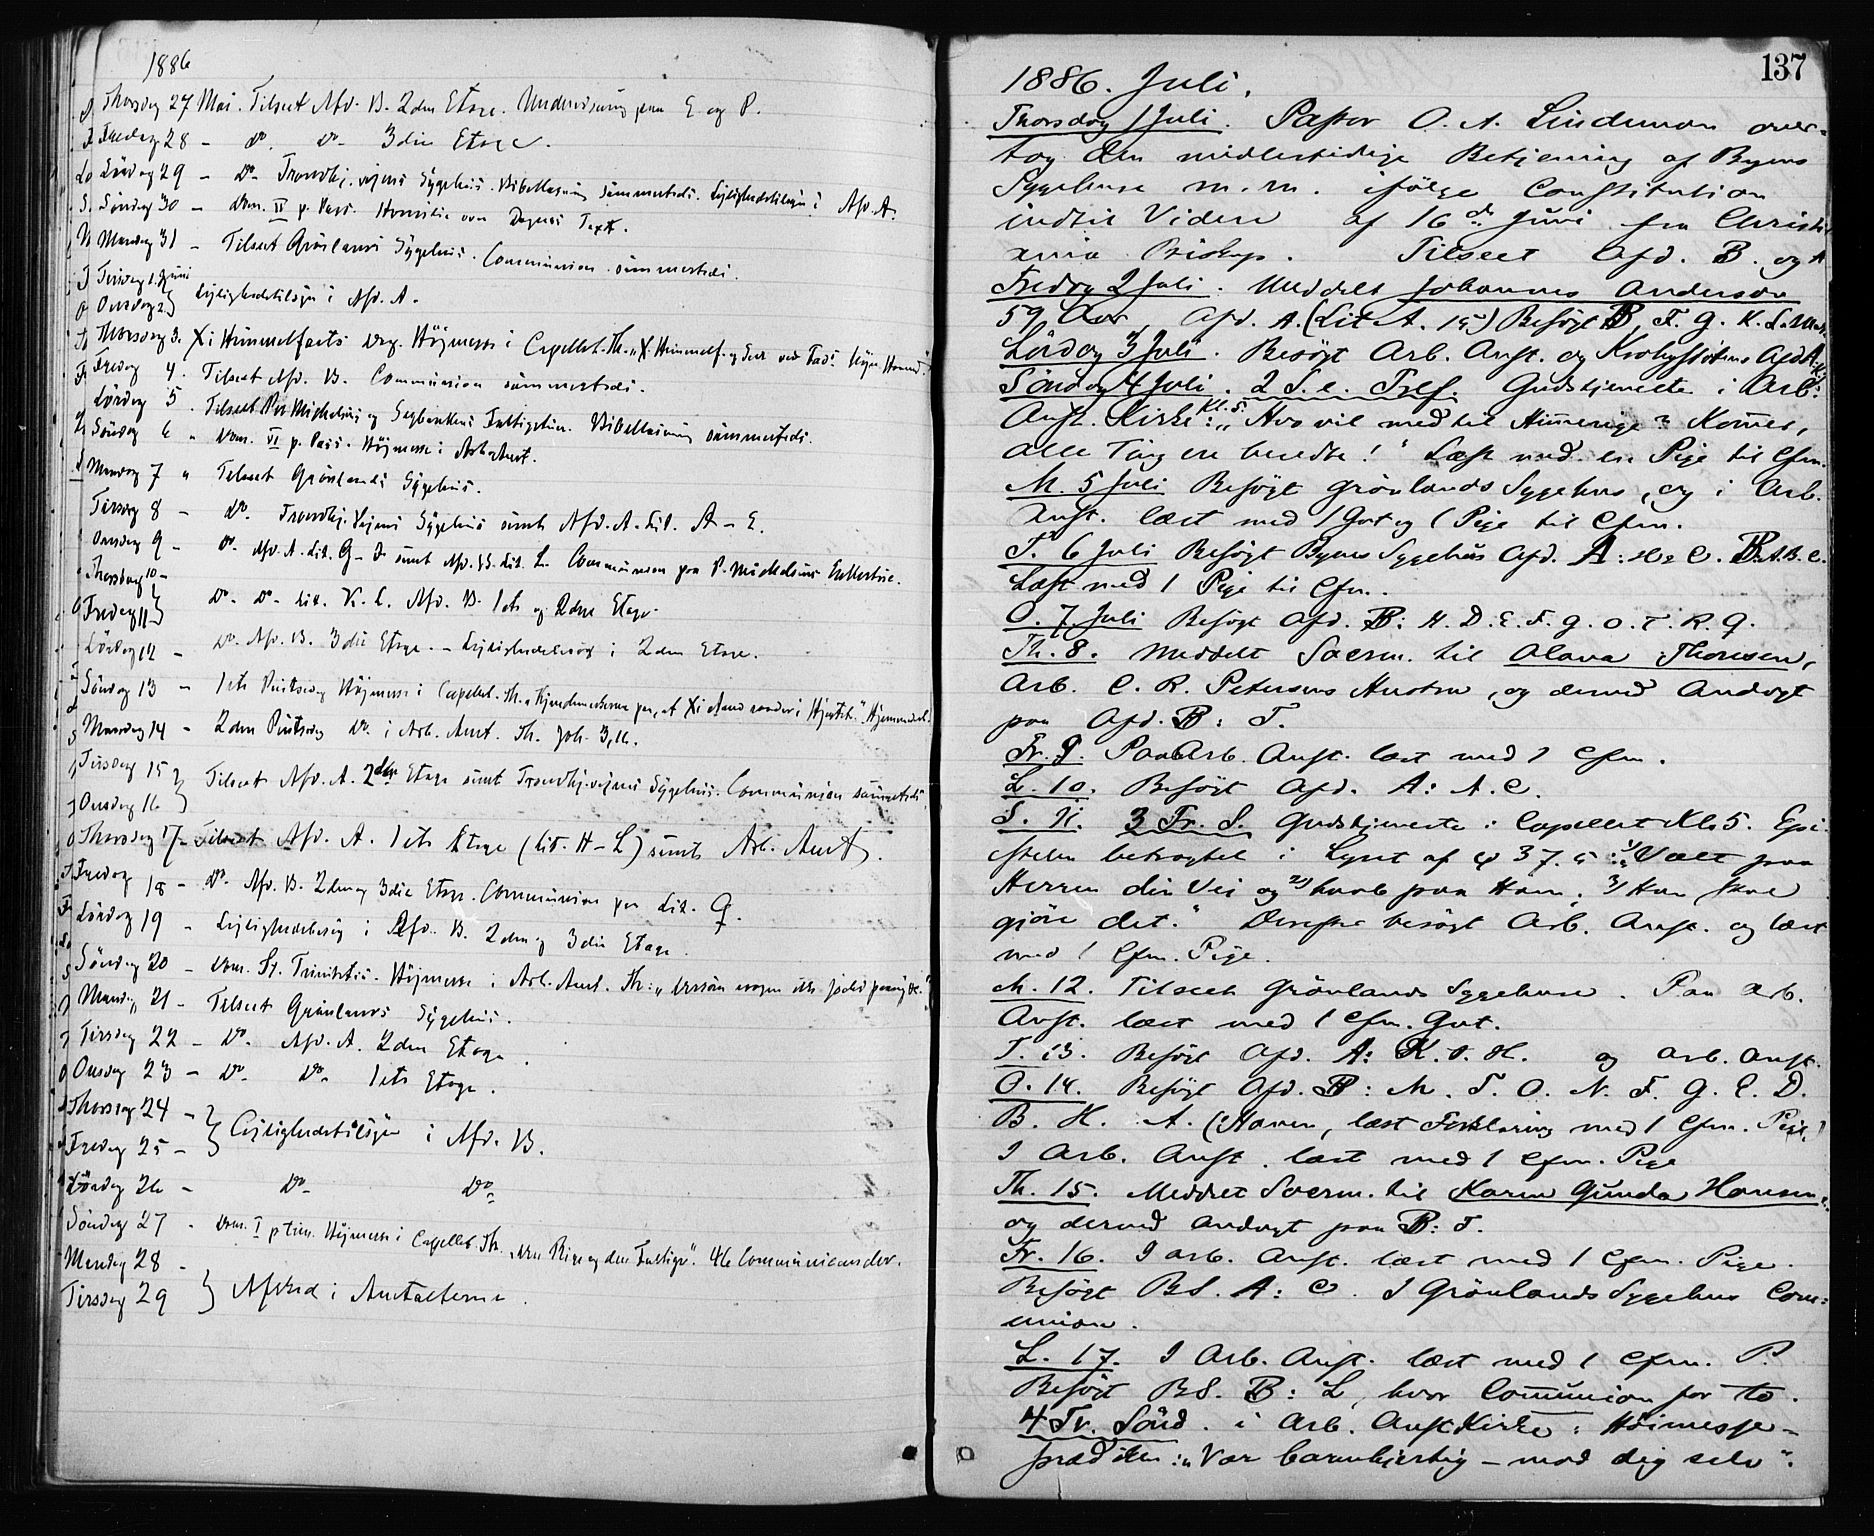 1886
Thorsdag 27 Mai. Tilseet Afd. B. 2den Etage. Undervisning paa E. og P.
Fredag 28 - do. do. 3die Etage.
Lördag 29 - do. Trondhj.vejens Sygehus. Bibellæsning sammesteds. Lejlighedstilsyn i Afd. A.
Söndag 30 - Dom. V p. Pasc. Homilie over Dagens Text.
Mandag 31 - Tilseet Grönlands Sygehus. Communion sammesteds.
Tirsdag 1. Juni
Onsdag 2 } Lejlighedstilsyn i Afd. A.
Thorsdag 3. Xi Himmelfarts Dag. Höjmesse i Capellet. Th. „X Himmelf. og Sæde ved Fad: höjre Haand."
Fredag 4. Tilseet Afd. B. Communion sammesteds.
Lördag 5. Tilseet P. Michelsens og Sagbankens Fattigstuer. Bibellæsning sammesteds.
Söndag 6 " Dom. VI p. Pasc. Höjmesse i Arb. Anst.
Mandag 7 " Tilseet Grönlands Sygehus.
Tirsdag 8 - do. Trondhj.vejens Sygehus samt Afd. A. Lit. A - E.
Onsdag 9 - do. Afd. A. Lit. G - J samt Afd. B. Lit. L. Communion paa P. Michelsens Enkestue.
Thorsdag 10 -
Fredag 11 } do. do. Lit. K. L. Afd. B. 1ste og 2den Etage.
Lördag 12 - do. Afd. B. 3die Etage. - Lejlighedsbesög i 2den Etage.
Söndag 13 - 1ste Pintsedag Höjmesse i Capellet. Th. „Kjendemærkerne paa, at Xi Aand raader i Hjertet."
Mandag 14 - 2den Pintsedag do. i Arb. Anst. Th. Joh. 3,16.
Tirsdag 15
Onsdag 16 } Tilseet Afd. A. 2den Etage samt Trondhj.vejens Sygehus. Communion sammesteds.
Thorsdag 17 - Tilseet Afd. A. 1ste Etage (Lit. H - L) samt Arb. Anst.
Fredag 18 - do. Afd. B. 2den og 3die Etage. Communion paa Lit. G.
Lördag 19 - Lejlighedsbesög i Afd. B. 2den og 3die Etage.
Söndag 20 - Dom. St. Trinitatis. Höjmesse i Arb. Anst. Th:
Mandag 21 - Tilseet Grönlands Sygehus.
Tirsdag 22 - do. Afd. A. 2den Etage.
Onsdag 23 - do. do. 1ste Etage.
Thorsdag 24 -
Fredag 25 - } Lejlighedstilsyn i Afd. B.
Lördag 26 - do. do.
Söndag 27 - Dom. I p Trin. Höjmesse i Capellet. Th. „Den Rige og den Fattige". 46 Communicander.
Mandag 28 -
Tirsdag 29 } Afsked i Anstalterne.
137
1886. Juli.
Thorsdag 1 Juli. Pastor O. A. Lindeman over-
tog den midlertidige Betjening af Byens
Sygehuse m.m. ifölge Constitution
indtil Videre af 16de Juni fra Christi-
ania Biskop. Tilseet Afd. B. og A
Fredag 2 Juli. Meddelt Johannes Anderson
59 Aar Afd. A. (Lit A. 15) Besögt B, F. G. K. L. M.
Lördag 3 Juli. Besögt Arb. Anst. og Krohgstötens Afd A.
Söndag 4 Juli. 2 S. e. Tref. Gudstjeneste i Arb:
Anst. Kirke: Kl. 5. „Hvo vil med til Himmerige? Kommer,
alle Ting ere beredte!" Læst med en Pige til Cfm.
M. 5 Juli Besögt Grönlands Sygehus, og i Arb.
Anst. læst med 1 Gut og 1 Pige til Cfm.
T. 6 Juli Besögt Byens Sygehus Afd. A: H & C. B. A. B. C.
Læst med 1 Pige til Cfm.
O. 7 Juli Besögt Afd. B: H. D. E. F. G. O. T. R. Q.
Th. 8. Meddelt Sacrm. til Olava Thoresen,
Arb. C. R. Petersens Hustru, og derved Andagt
paa Afd. B: T.
Fr. 9. Paa Arb. Anst. læst med 1 Cfm.
L. 10. Besögt Afd. A: A. C.
S. 11. 3 Tr. S. Gudstjeneste i Capellet Kl. 5. Epi-
stelen betragtet i Lyset af ψ 37. 5: „1) Vælt paa
Herren din Vei og 2) haab paa Ham; 3) Han skal
gjöre det." Derefter besögt Arb. Anst. og læst
med 1 Cfm. Pige.
M. 12. Tilseet Grönlands Sygehuse. Paa Arb.
Anst. læst med 1 Cfm. Gut.
T. 13. Besögt Afd. A: K. J. H. og Arb. Anst.
O. 14. Besögt Afd. B: M. T. O. N. F. G. E. D.
B. H. A. (Haven, læst Forklaring med 1 Cfm. Pige)
I Arb. Anst. læst med 1 Cfm. Pige
Th. 15. Meddelt Sacrm. til Karen Gunda Hansen
og derved Andagt paa B: T.
Fr. 16. I Arb. Anst. læst med 1 Cfm. Pige.
Besögt BS. A: C. I Grönlands Sygehus Com-
union.
L. 17. I Arb. Anst. læst med 1 Cfm. P.
Besögt BS. B: L, hvor Communion for to.
4 Tr. Sönd. i Arb. Anst Kirke: Höimesse-
prædiken: „Vær barmhjertig - mod dig selv".